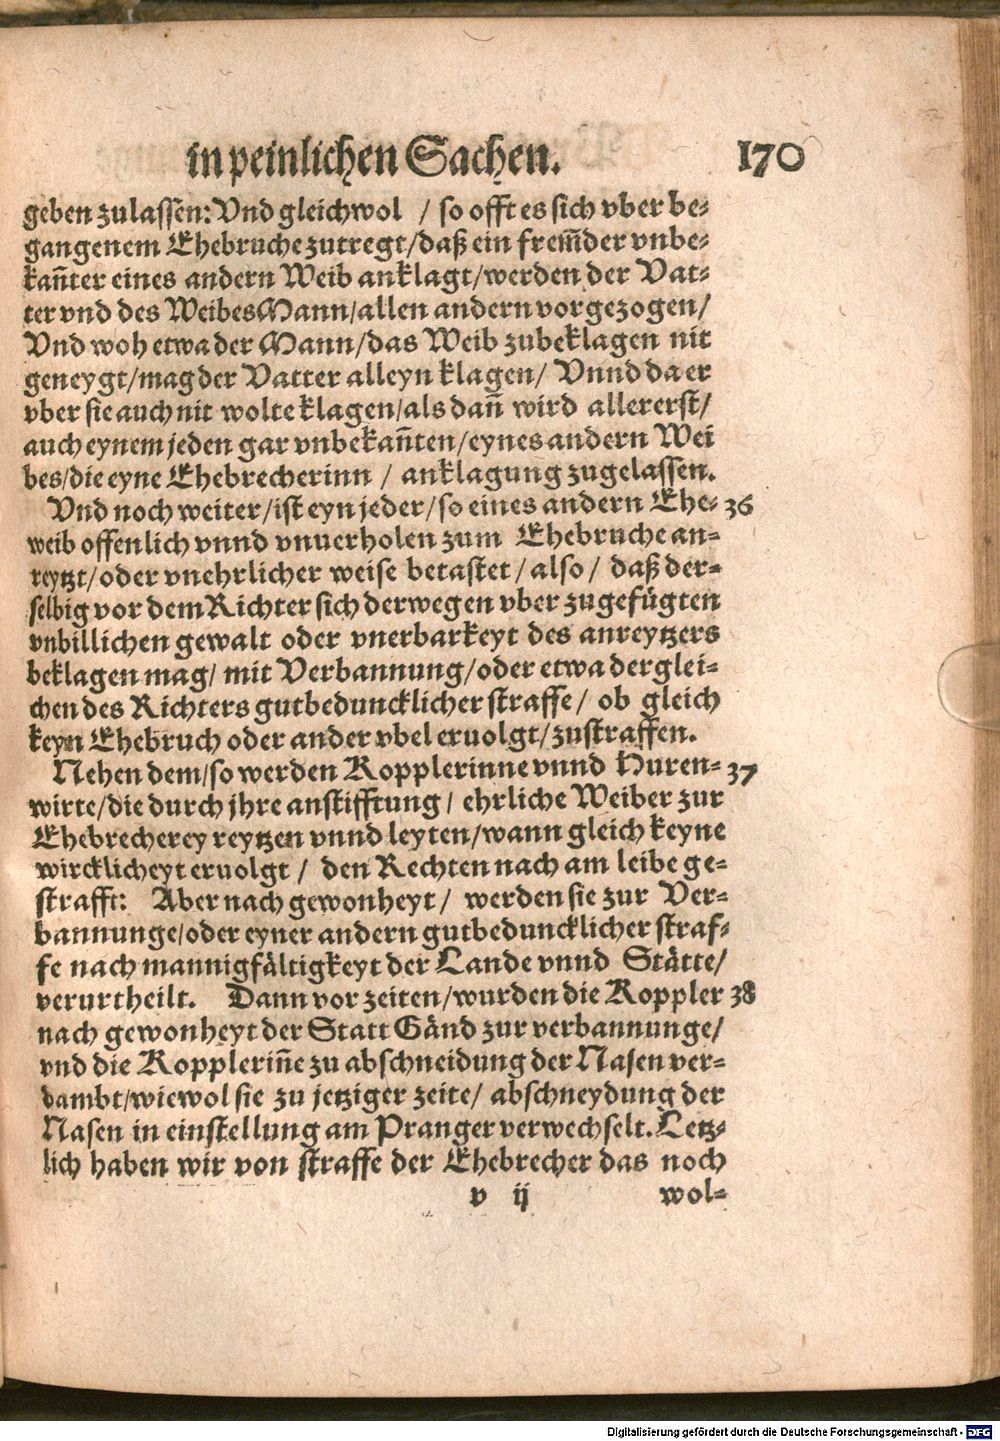 in peinlichen Sachen. 170
geben zulassen: Vnd gleichwol / so offt es sich vber be-
gangenem Ehebruche zutregt/daß ein frem̃der vnbe-
kañter eines andern Weib anklagt/werden der Vat-
ter vnd des Weibes Mann/allen andern vorgezogen/
Vnd woh etwa der Mann/das Weib zubeklagen nit
geneygt/mag der Vatter alleyn klagen/ Vnnd da er
vber sie auch nit wolte klagen/als dañ wird allererst/
auch eynem jeden gar vnbekañten/eynes andern Wei
bes/die eyne Ehebrecherinn / anklagung zugelassen.
Vnd noch weiter/ist eyn jeder/so eines andern Ehe- 36
weib offenlich vnnd vnuerholen zum Ehebruche an-
reytzt/oder vnehrlicher weise betastet/also/ daß der-
selbig vor dem Richter sich derwegen vber zugefügten
vnbillichen gewalt oder vnerbarkeyt des anreytzers
beklagen mag/ mit Verbannung/oder etwa derglei-
chen des Richters gutbeduncklicher straffe/ ob gleich
keyn Ehebruch oder ander vbel eruolgt/zustraffen.
Nehen dem/so werden Kopplerinne vnnd Huren- 37
wirte/die durch jhre anstifftung/ ehrliche Weiber zur
Ehebrecherey reytzen vnnd leyten/wann gleich keyne
wircklicheyt eruolgt/ den Rechten nach am leibe ge-
strafft: Aber nach gewonheyt/ werden sie zur Ver-
bannunge/oder eyner andern gutbeduncklicher straf-
fe nach mannigfältigkeyt der Lande vnnd Stätte/
verurtheilt. Dann vor zeiten/wurden die Koppler 38
nach gewonheyt der Statt Gänd zur verbannunge/
vnd die Koppleriñe zu abschneidung der Nasen ver-
dambt/wiewol sie zu jetziger zeite/ abschneydung der
Nasen in einstellung am Pranger verwechselt. Letz-
lich haben wir von straffe der Ehebrecher das noch
v ij wol-
Digitalisierung gefördert durch die Deutsche Forschungsgemeinschaft - DFG